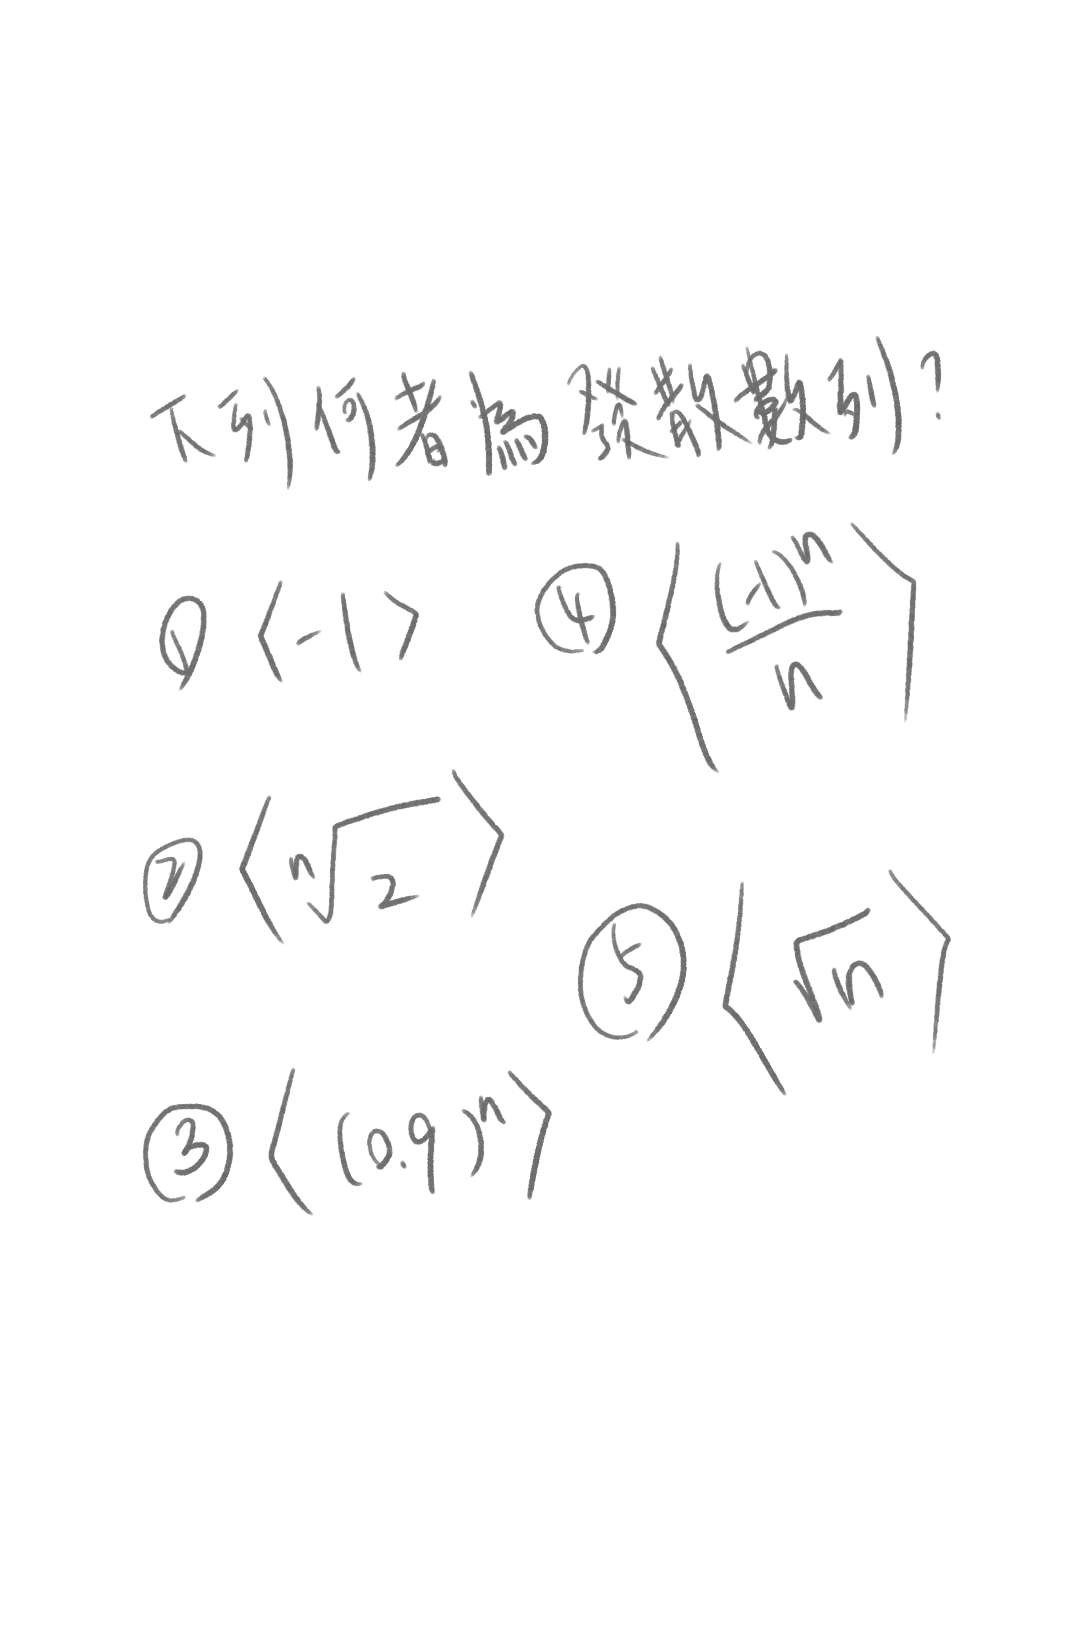 下列何者為發散數列?
① ⟨-1⟩
② ⟨ⁿ√2⟩
③ ⟨(0.9)ⁿ⟩
④ ⟨(-1)ⁿ/n⟩
⑤ ⟨√n⟩